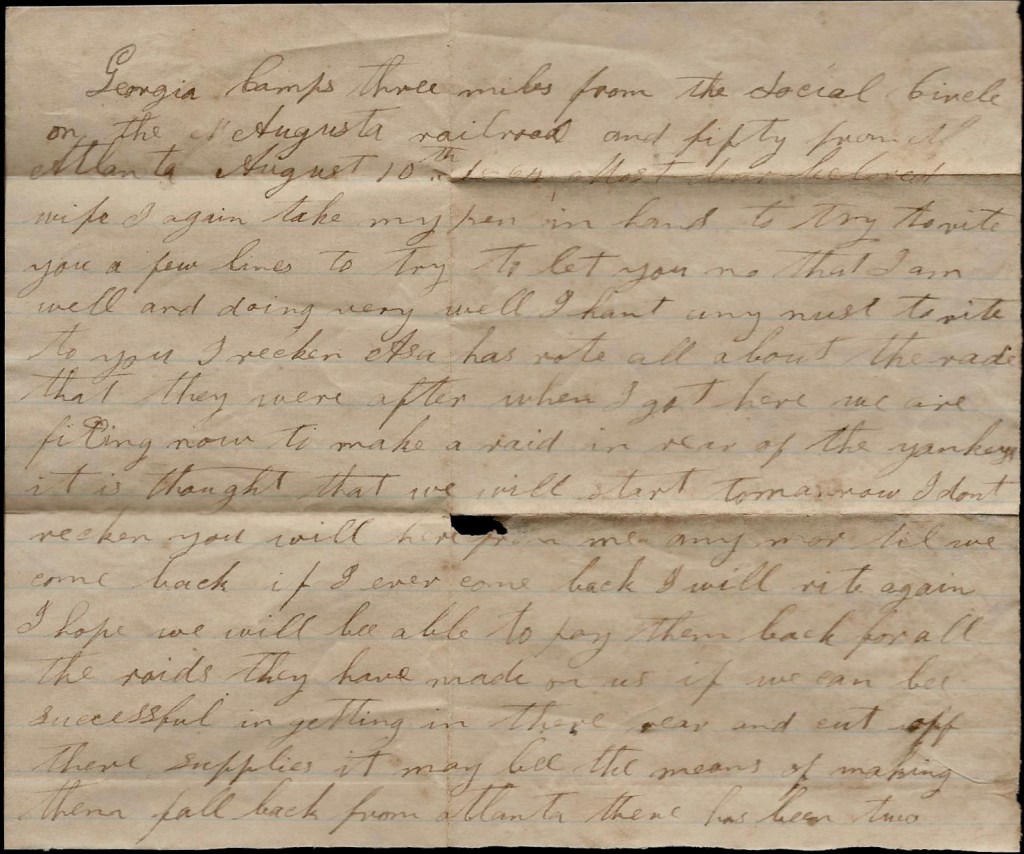 Georgia Camps three miles from the Social Circle
on the Augusta railroad and fifty from
Atlanta August 10th 1864 Most dear beloved
wife I again take my pen in hand to try to rite
you a few lines to try to let you no that I am
well and doing very well I hant any nust to rite
to you I recken Asa has rote all about the rade
that they were after when I got here we are
fixing now to make a raid in rear of the yankeys
it is thought that we will start tomarrow I dont
recken you will here from me any mor til we
come back if I ever come back I will rite again
I hope we will bee able to pay them back for all
the raids they have made on us if we can bee
successful in getting in there rear and cut off
there supplies it may bee the means of making
them fall back from atlanta there has been two